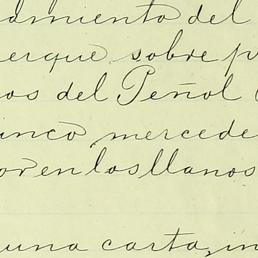 amiento del
erque sobre p
os del Peñol
inco mercede
or en los llanos
una carta, in